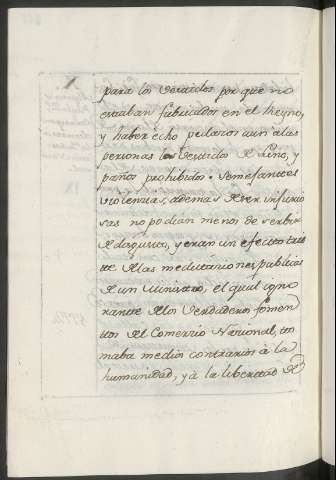 para los vestidos por que no
estaban fabricados en el Reyno,
y haber echo pedazos aun alas
personas los vestidos de Lino, y
paños prohibidos. Semejantes
violencias, ademas de ser injurio
sas no podian menos de servir
de disgusto, y eran un efecto tris
te de las meditaciones publicas
de un Ministro, el qual igno
rante de los verdaderos fomen
tos del Comercio Nacional, to
maba medios contrarios à la
humanidad, y à la libertad de